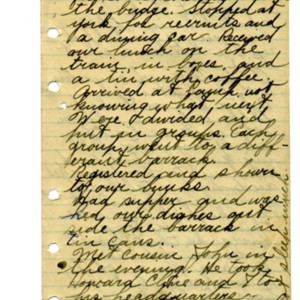 the bridge. Stopped at
York for recruits and
a dining car. Received
our lunch on the
train in boxes, and
a tin with coffee.
Arrived at camp not
knowing what next.
Were divided and
put in groups. Each
group went to a diff-
erant barrack.
Registered and shown
to our bunks.
Had supper and was
hed our dishes out
side the barrack in
tin cans.
Met cousin John in
the evening. He took
Howard and I to
his headquarters